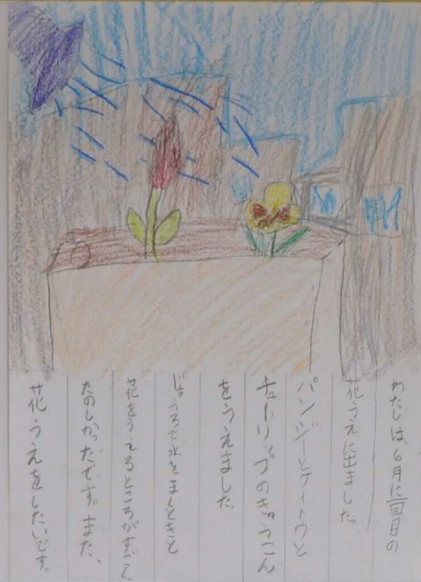 わたしは、6月に二回目の
花うえに出ました。
パンジーとティトウと
チューリップのきゅうこん
をうえました。
じょうろで水をまくときと
花をうえるところがすごく
たのしかったです。また、
花うえをしたいです。